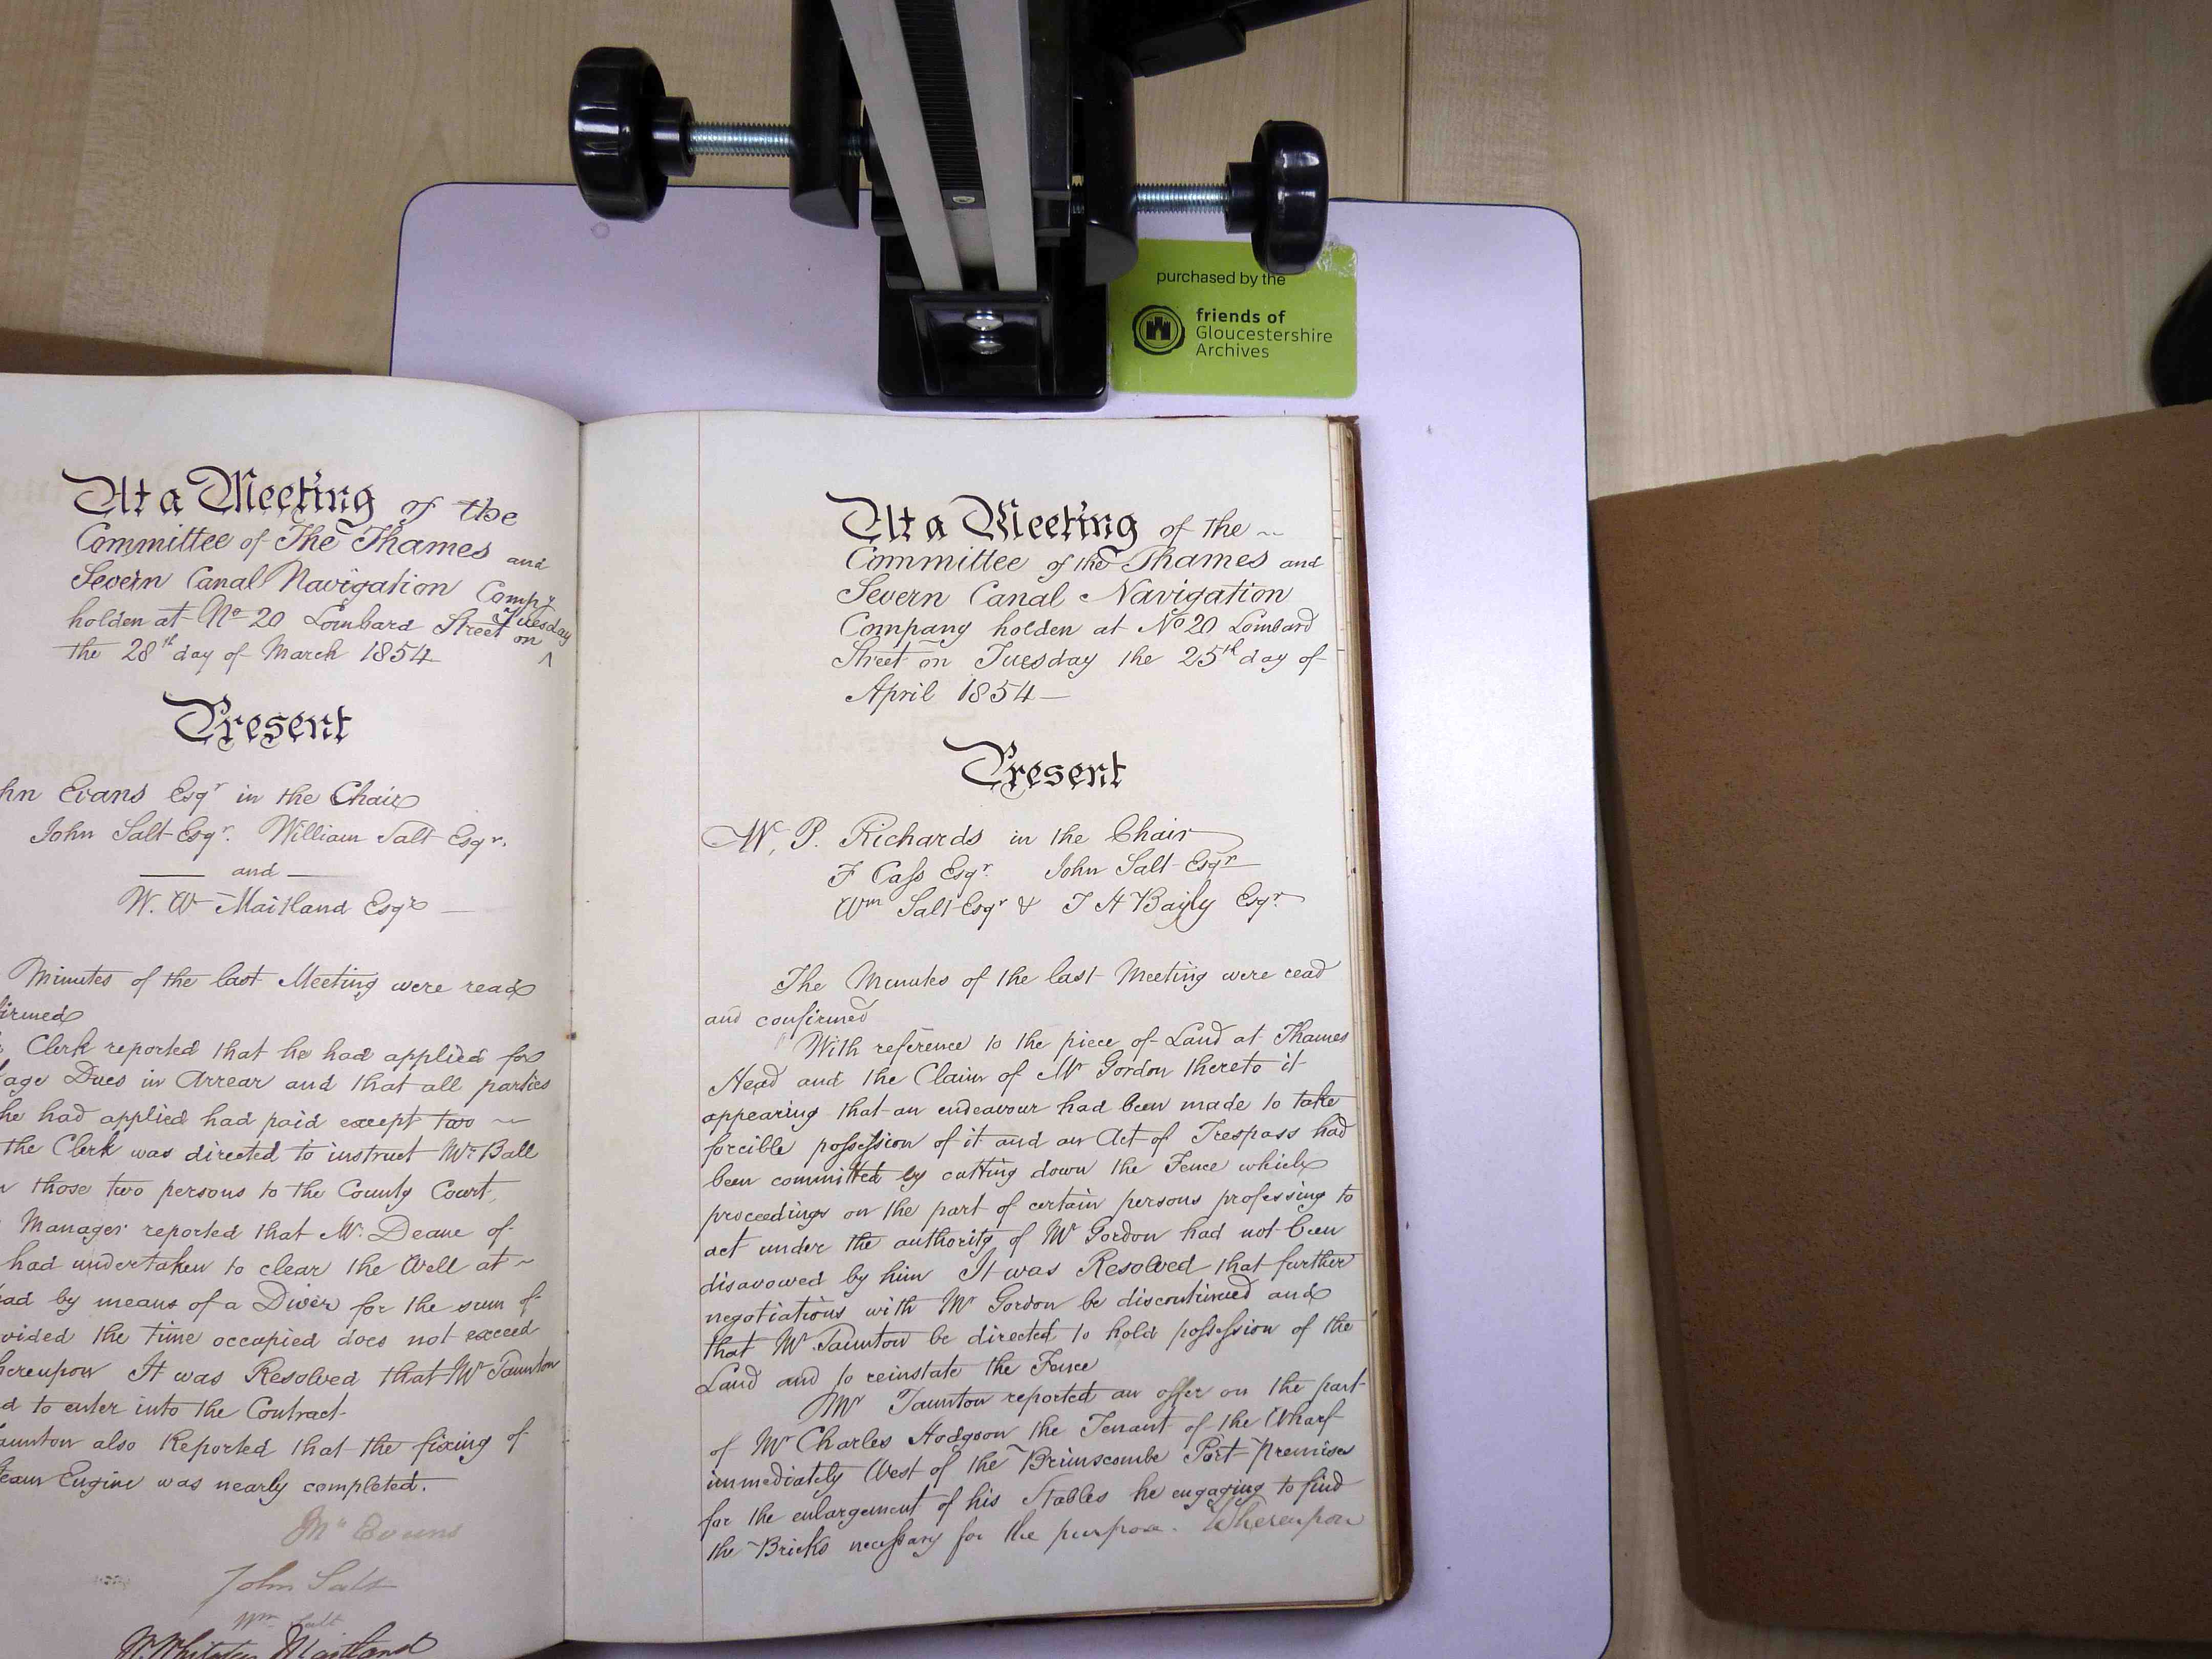 purchased by the
friends of
Gloucestershire
Archives
At a Meeting of the
Committee of The Thames and
Severn Canal Navigation Compy
holden at No 20 Lombard Street on Tuesday
the 28th day of March 1854
Present
hn Evans Esqr in the Chair
John Salt Esqr. William Salt Esqr.
and
W. W Maitland Esqre
Minutes of the last Meeting were read
firmed
Clerk reported that he had applied for
age Dues in Arrear and that all parties
he had applied had paid except two
the Clerk was directed to instruct Mr Ball
those two persons to the County Court,
Manager reported that Mr. Deane of
had undertaken to clear the Well at
ad by means of a Diver for the sum of
vided the time occupied does not exceed
hereupon It was Resolved that Mr Taunton
d to enter into the Contract
aunton also Reported that the fixing of
team Engine was nearly completed.
Evans
John Salt
Wm Salt
Maitland
At a Meeting of the
Committee of the Thames and
Severn Canal Navigation
Company holden at No 20 Lombard
Street on Tuesday the 25th day of
April 1854
Present
W. P. Richards in the Chair
F Cass Esqr. John Salt Esqr
Wm Salt Esqr & T H Bayly Esqr.
The Minutes of the last Meeting were read
and confirmed
With reference to the piece of Land at Thames
Head and the Claim of Mr Gordon thereto it
appearing that an endeavour had been made to take
forcible possession of it and an Act of Trespass had
been committed by cutting down the Fence which
proceedings on the part of certain persons professing to
act under the authority of Mr Gordon had not been
disavowed by him It was Resolved that further
negotiations with Mr Gordon be discontinued and
that Mr Taunton be directed to hold possession of the
Land and to reinstate the Fence
Mr Taunton reported an offer on the part
of Mr Charles Hodgson the Tenant of the Wharf
immediately West of the Brimscombe Port Premises
for the enlargement of his Stables he engaging to find
the Bricks necessary for the purpose. Whereupon